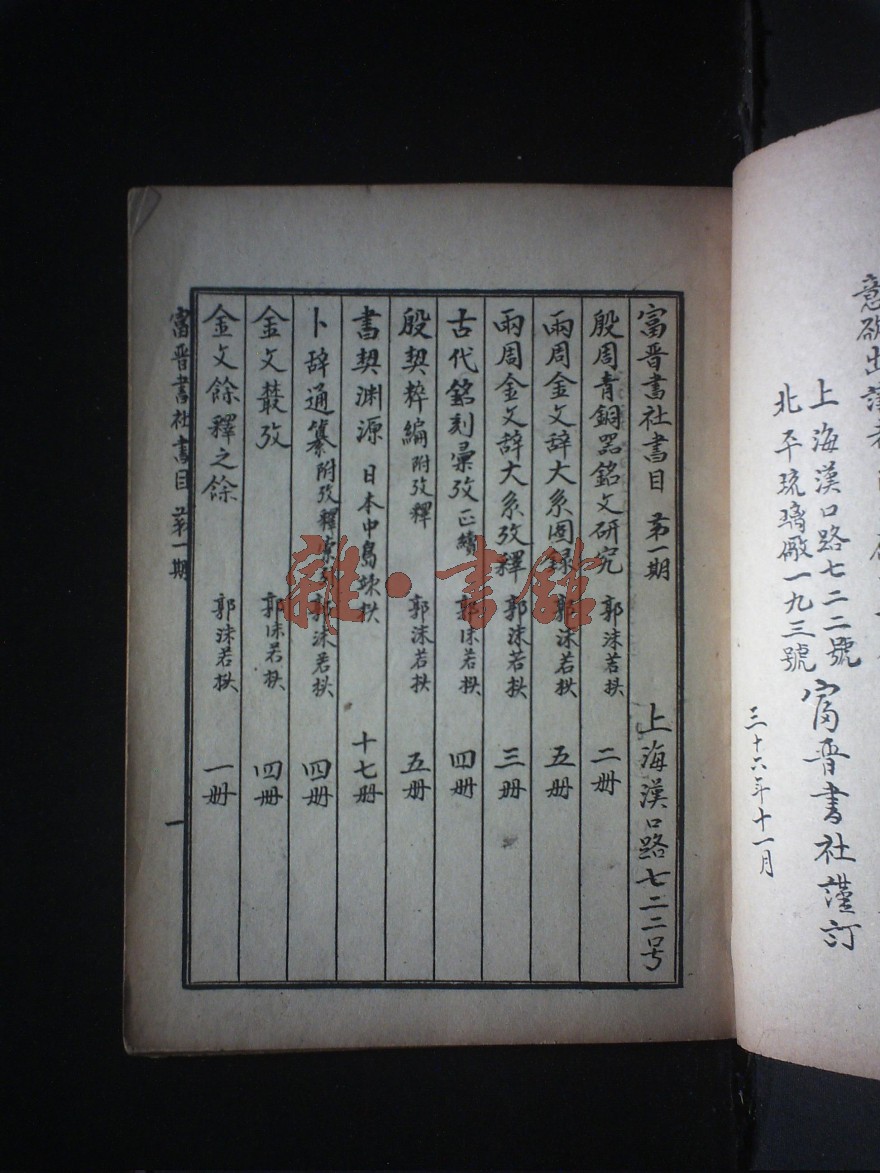 意欲出讓者
上海漢口路七二二號
北平琉璃廠一九三號
富晋書社謹訂
三十六年十一月
富晋書社書目 第一期 上海漢口路七二二号
殷周青銅器銘文研究 郭沫若撰 二册
兩周金文辞大系圖録 郭沫若撰 五册
兩周金文辞大系攷釋 郭沫若撰 三册
古代銘刻彙攷 正續 郭沫若撰 四册
殷契粹編 附攷釋 郭沫若撰 五册
書契渊源 日本中島竦撰 十七册
卜辞通纂 附攷釋索引 郭沫若撰 四册
金文叢攷 郭沫若撰 四册
金文餘釋之餘 郭沫若撰 一册
富晋書社書目 第一期 一
雜·書館